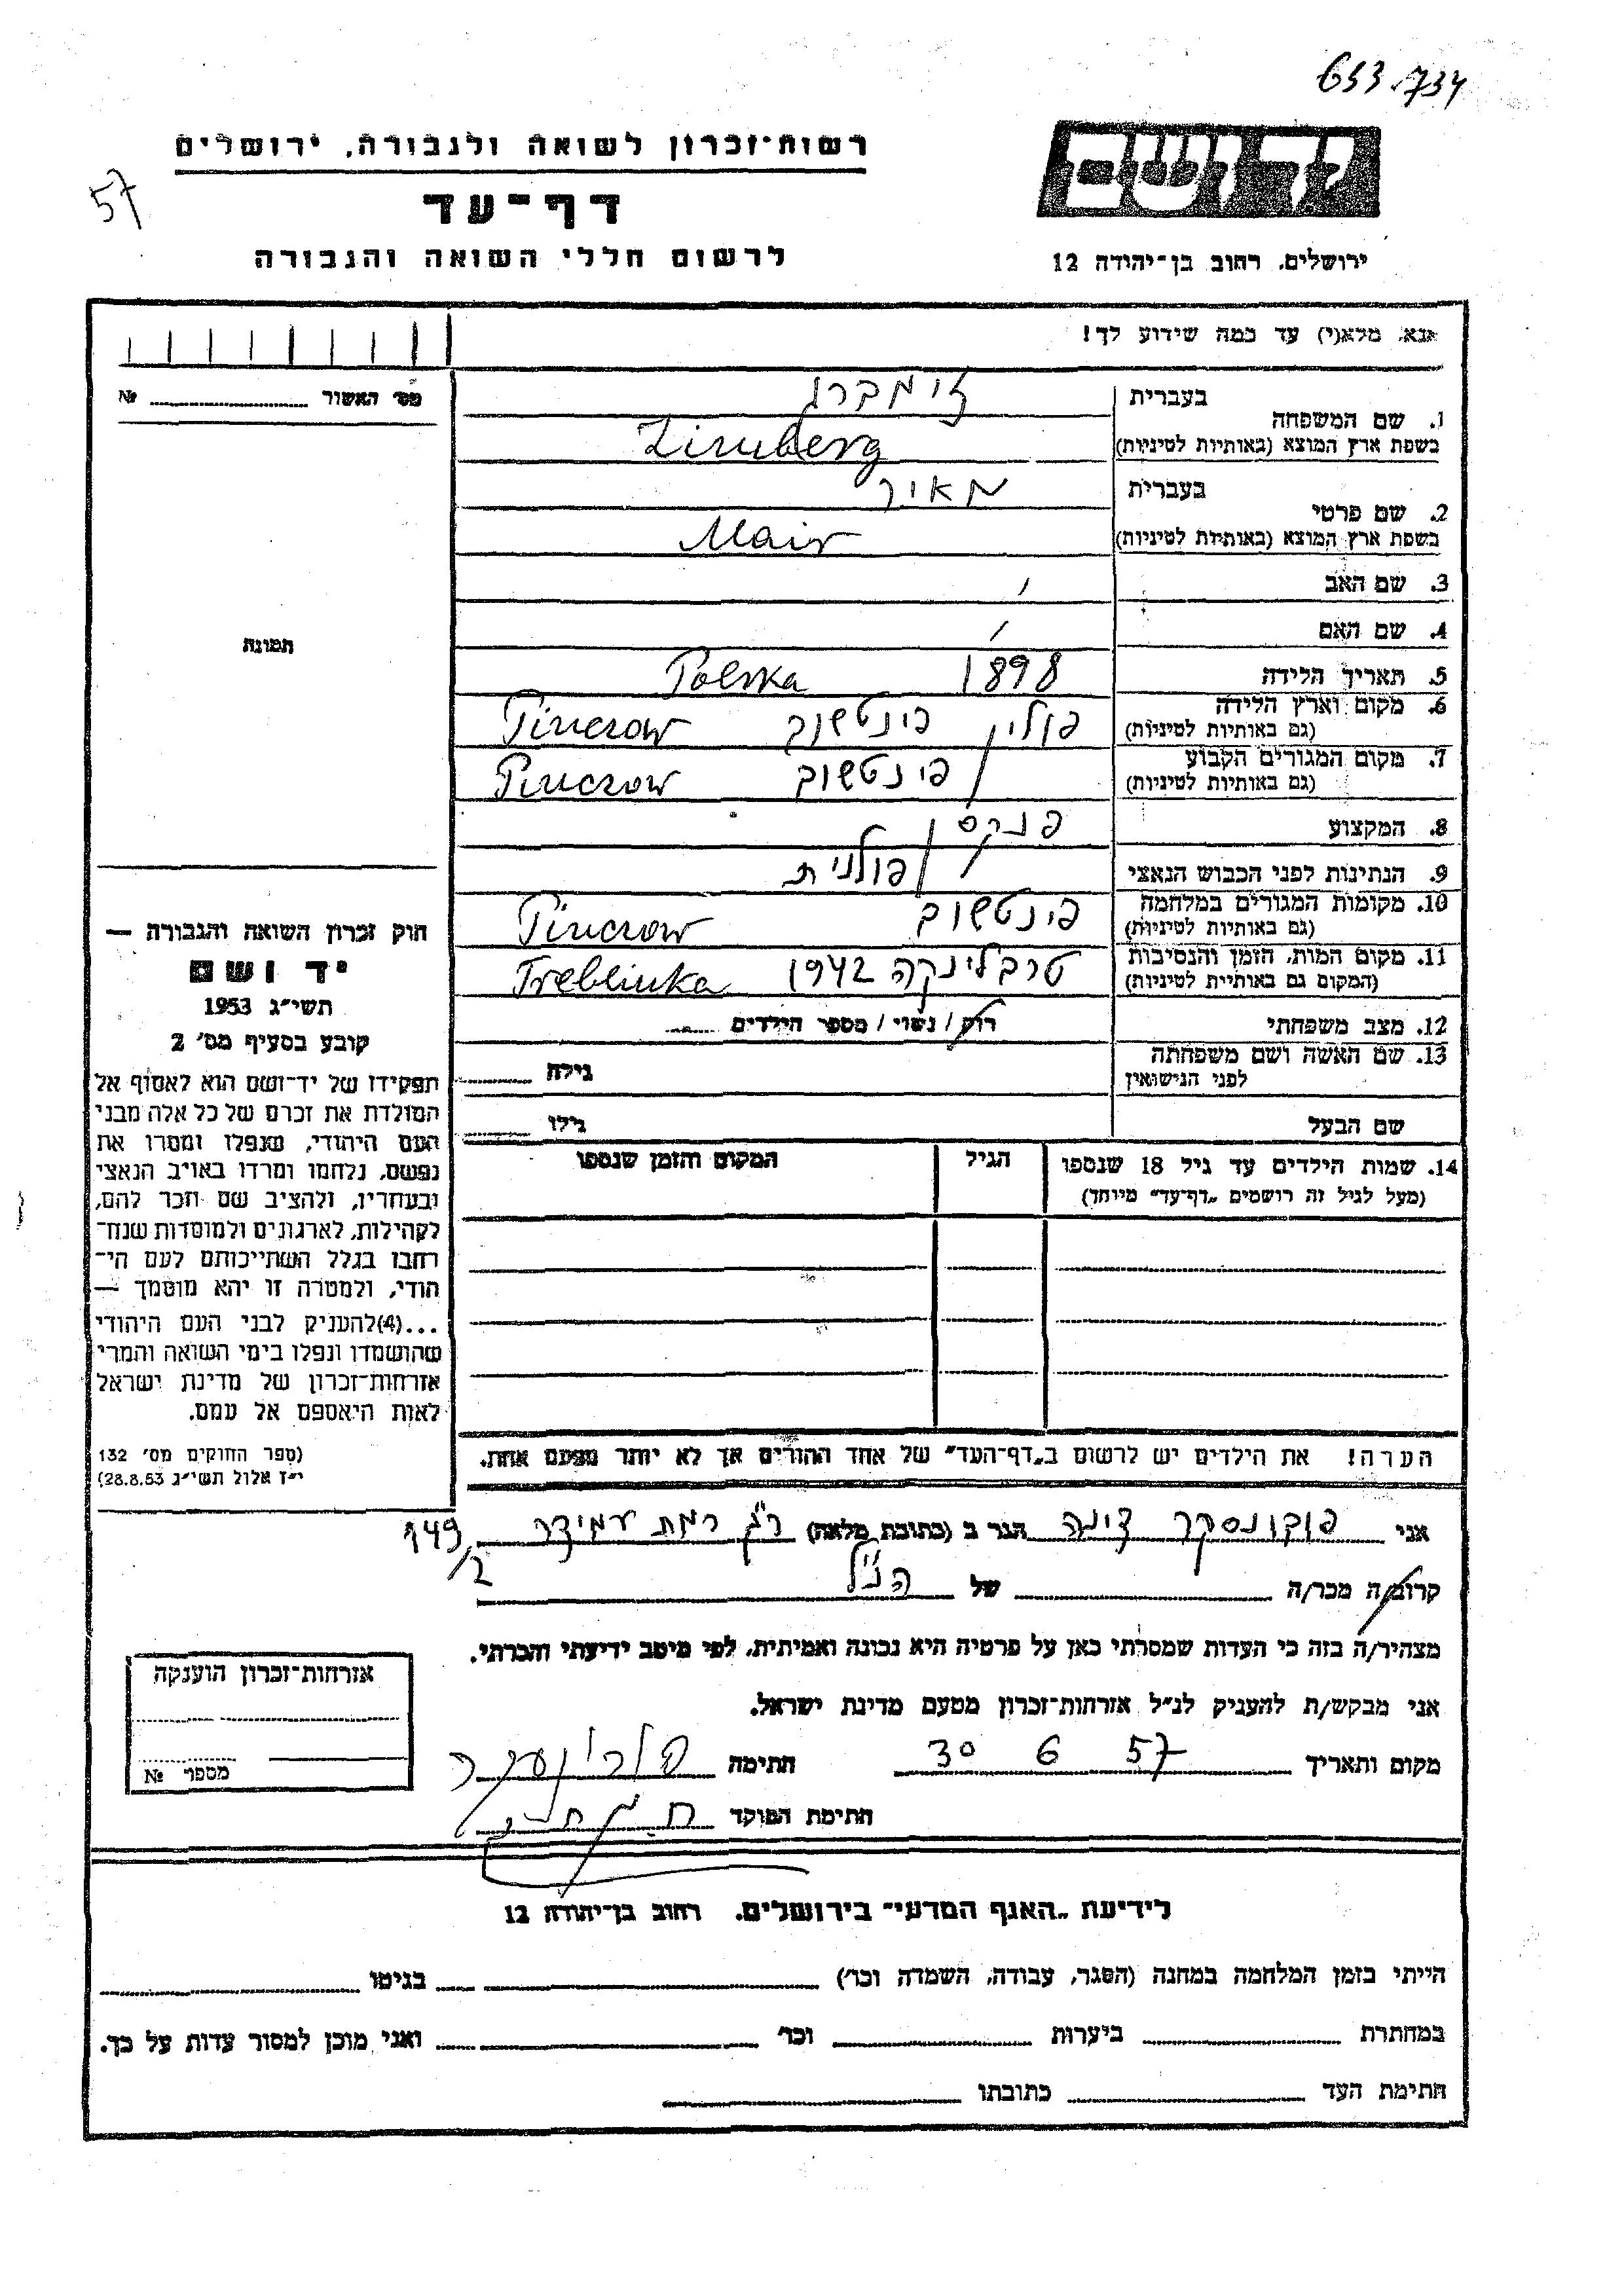 653.734
רשות־זכרון לשואה ולגבורה, ירושלים
57
דף־עד
לרשום חללי השואה והגבורה
ירושלים, רחוב בן־יהודה 12
נא, מלא(י) עד כמה שידוע לך!
מס׳ האשור № 
1. שם המשפחה
בעברית זימברג
בשפת ארץ המוצא (באותיות לטיניות) Zimberg
2. שם פרטי
בעברית מאיר
בשפת ארץ המוצא (באותיות לטיניות) Mair
3. שם האב
4. שם האם
5. תאריך הלידה 1898 Polska
6. מקום וארץ הלידה פולין פינטשוב Pinczow
(גם באותיות לטיניות)
7. מקום המגורים הקבוע פינטשוב Pinczow
(גם באותיות לטיניות)
8. המקצוע פנקסן
9. הנתינות לפני הכבוש הנאצי פולנית
10. מקומות המגורים במלחמה פינטשוב Pinczow
(גם באותיות לטיניות)
11. מקום המות, הזמן והנסיבות טרבלינקה 1942 Treblinka
(המקום גם באותיות לטיניות)
12. מצב משפחתי רוק / נשוי / מספר הילדים
13. שם האשה ושם משפחתה
לפני הנישואין גילה
שם הבעל גילו
14. שמות הילדים עד גיל 18 שנספו הגיל המקום והזמן שנספו
(מעל לגיל זה רושמים „דף־עד״ מיוחד)
הערה! את הילדים יש לרשום ב„דף־העד״ של אחד ההורים אך לא יותר מפעם אחת.
תמונה
חוק זכרון השואה והגבורה —
יד ושם
תשי״ג 1953
קובע בסעיף מס׳ 2
תפקידו של יד־ושם הוא לאסוף אל
המולדת את זכרם של כל אלה מבני
העם היהודי, שנפלו ומסרו את
נפשם, נלחמו ומרדו באויב הנאצי
ובעוזריו, ולהציב שם וזכר להם,
לקהילות, לארגונים ולמוסדות שנח־
רבו בגלל השתייכותם לעם הי־
הודי, ולמטרה זו יהא מוסמך —
...(4)להעניק לבני העם היהודי
שהושמדו ונפלו בימי השואה והמרי
אזרחות־זכרון של מדינת ישראל
לאות היאספם אל עמם.
(ספר החוקים מס׳ 132
י״ז אלול תשי״ג 28.8.53)
אני דינה הגר ב (כתובת מלאה) ר״ג רמת עמידר 149/2
קרוב/ה מכר/ה של הנ״ל
מצהיר/ה בזה כי העדות שמסרתי כאן על פרטיה היא נכונה ואמיתית, לפי מיטב ידיעתי והכרתי.
אני מבקש/ת להעניק לנ״ל אזרחות־זכרון מטעם מדינת ישראל.
מקום ותאריך 30 6 57 חתימה
חתימת הפוקד
אזרחות־זכרון הוענקה
מספר №
לידיעת „האגף המדעי״ בירושלים, רחוב בן־יהודה 12
הייתי בזמן המלחמה במחנה (הסגר, עבודה, השמדה וכו׳) בגיטו
במחתרת ביערות וכו׳ ואני מוכן למסור עדות על כך.
חתימת העד כתובתו